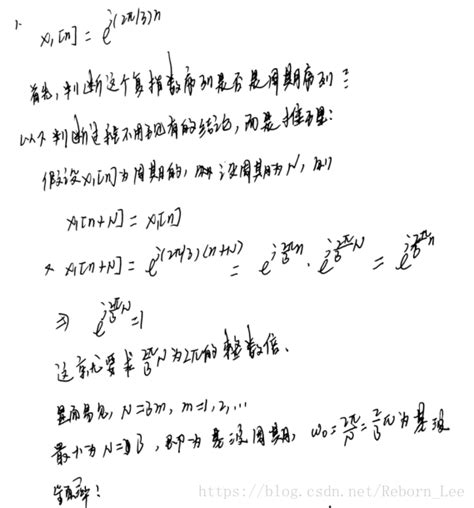 1.
x₁[n] = e^{j(2π/3)n}
首先,判断这个复指数序列是否是周期序列
以下判断过程不用现有的结论,而是推理:
假设x₁[n]为周期的,设周期为N,则
x₁[n+N] = x₁[n]
x₁[n+N] = e^{j(2π/3)(n+N)} = e^{j\frac{2π}{3}n} · e^{j\frac{2π}{3}N} = e^{j\frac{2π}{3}n}
⇒ e^{j\frac{2π}{3}N} = 1
这就要求\frac{2π}{3}N为2π的整数倍、
显而易见,N=3m, m=1,2,...
最小为N=3,即为基波周期,ω₀=\frac{2π}{N}=\frac{2}{3}π为基波
频率!
https://blog.csdn.net/Reborn_Lee